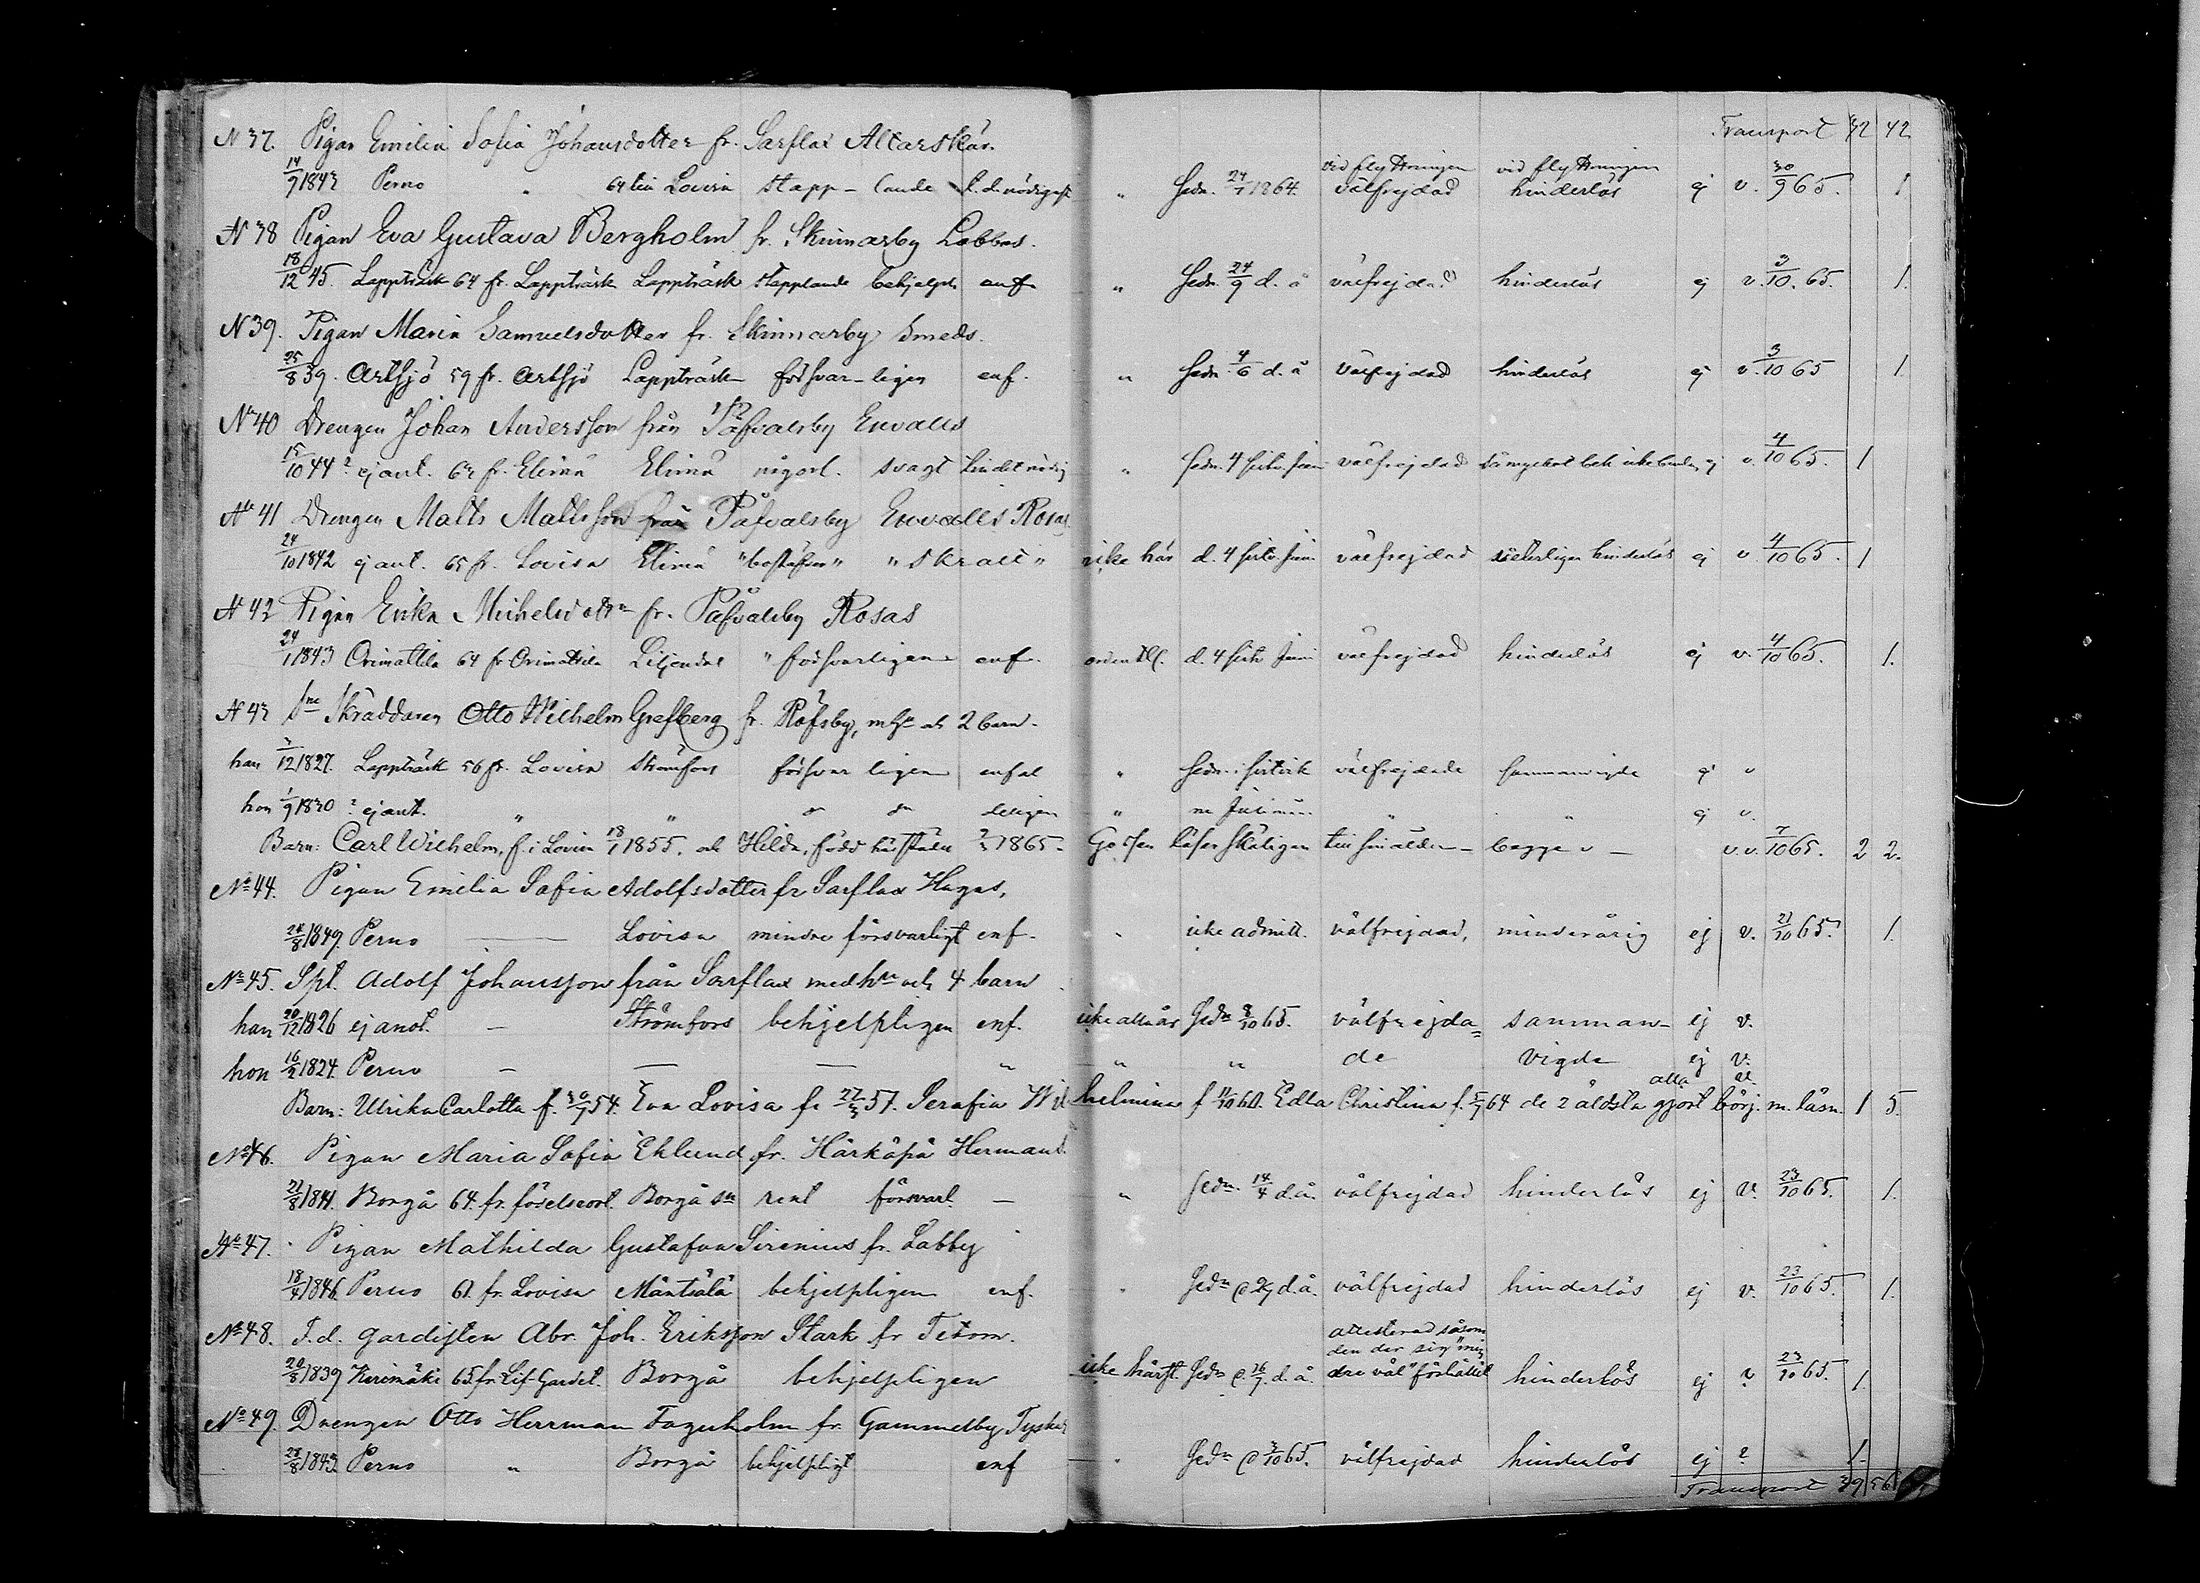 Transport 32 42
N 37. Pigan Emilia Sofia Johansdotter fr. Sarflax Altarskär.
14/9 1843 Perno " 64 till Lovisa stapp-lande l. d. nödigaste " Sedn. 24/1 1864. vid flyttningen välfrejdad vid flyttningen hinderlös ej v. 30/9 65. 1
N 38 Pigan Eva Gustava Bergholm fr. Skinnarby Labbas.
18/12 45. Lappträsk 64 fr. Lappträsk Lappträsk stapplande behjelpl. enf. " Sedn. 24/9 d. å välfrejdad hinderlös ej v. 3/10. 65. 1.
N 39. Pigan Maria Samuelsdotter fr. Skinnarby Smeds.
25/8 39. Artsjö 59 fr. Artsjö Lappträsk försvar-ligen enf. " Sedn. 4/6 d. å välfrejdad hinderlös ej v. 3/10 65 1
No 40 Drengen Johan Andersson från Påfvalsby Envalls
15/10 44? ej ant. 62 fr. Elimä Elimä någorl. svagt " Sedn. 4 sistv. Juni välfrejdad ej v. 4/10 65. 1
No 41 Drengen Matts Mattsson från Påfvalsby Envalls Rosas
24/10 1842 ej ant. 65 fr. Lovisa Elimä "bostafven" "skralt" icke här d. 4 sistv. Juni välfrejdad hinderlös ej v. 4/10 65. 1
N 42 Pigan Erika Michelsdotter fr. Påfvalsby Rosas
24/1 1843 Orimattila 64 fr Orimattila Liljendal " försvarligen enf. ordentl. d. 4 sistv Juni välfrejdad hinderlös ej v. 4/10 65. 1.
N 43 Skräddaren Otto Wilhelm Grefberg fr. Räfsby, m hu och 2 barn.
han /12 1827. Lappträsk 56 fr. Lovisa Strömfors försvar ligen enfal " Sedn. i sistvik välfrejdade sammanvigde ej "
hon 1/9 1830? ej ant. " " deligen " ne Juni " " ej v.
Barn: Carl Wilhelm, f. i Lovisa 18/1 1855. och Hilda, född härstädes 1865. Gossen läser skäligen till sin ålder - bägge v - v. v. 7/10 65. 2 2.
No 44. Pigan Emilia Sofia Adolfsdotter fr Sarflax Hagas,
24/8 1849. Perno — Lovisa mindre försvarligt enf. " icke admitt. välfrejdad, minderårig ej v. 21/10 65. 1.
No 45. Spl. Adolf Johansson från Sarflax med hu och 4 barn
han 20/12 1826 ej anot. — Strömfors behjelpligen enf. icke allt år Sedn 8/10 65. välfrejda= samman- ej v.
hon 16/2 1824. Perno — — — " " " de vigde ej v.
Barn: Ulrika Carlotta f. 30/7 54. Eva Lovisa f. 27/3 57. Serafia Wilhelmina f 11/10 60. Edla Christina f. 5/7 64 de 2 äldsta gjort börj. m. läsn. alla ej. 1 5.
No 46. Pigan Maria Sofia Eklund fr. Härkäpä Hermans.
21/8 1841. Borgå 64. fr. födelseort. Borgå sn rent försvarl. — " Sedn. 14/4 d. å. välfrejdad hinderlös ej v. 23/10 65. 1.
No 47. Pigan Mathilda Gustafva Sirenius fr. Labby
18/4 1846. Perno 61. fr. Lovisa Mäntsälä behjelpligen enf. " Sedn d. å. välfrejdad hinderlös ej v. 23/10 65. 1.
No 48. F. d. gardisten Abr. Joh. Eriksson Stark fr Tetom.
20/8 1839 Kerimäki 65. fr. Lif Gardet. Borgå behjelpligen icke härst. Sedn d. å. attesterad såsom den der sig "min dre väl" förhållit hinderlös ej v 23/10 65. 1.
No 49. Drengen Otto Herrman Fagerholm fr. Gammelby Tyskas
28/8 1843. Perno " Borgå behjelpligt enf " Sedn 65. välfrejdad hinderlös ej ? 1.
Transport 39 56